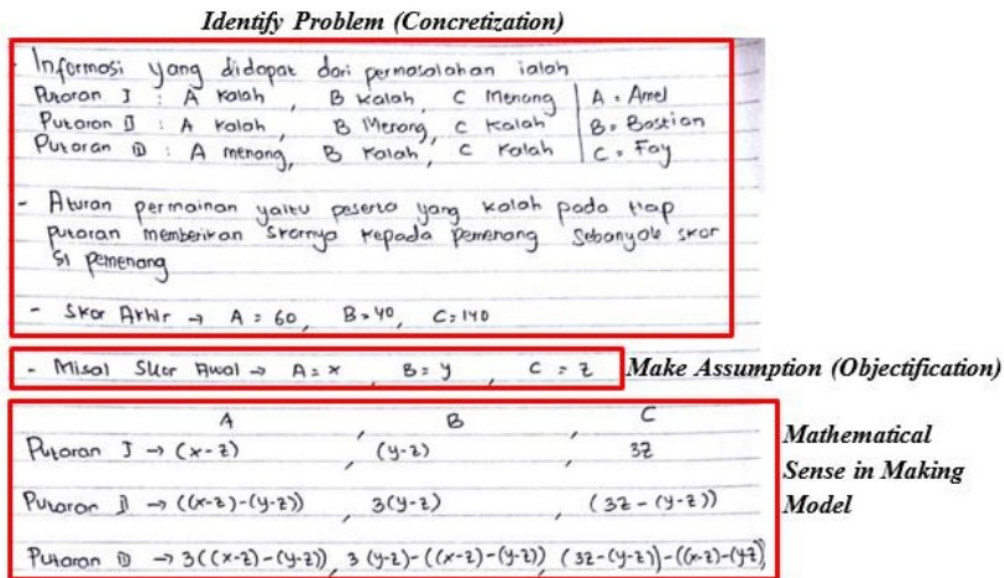 Identify Problem (Concretization)
- Informasi yang didapat dari permasalahan ialah
Putaran I : A kalah , B kalah, C Menang | A = Amel
Putaran II : A kalah , B Menang, C kalah | B = Bastian
Putaran III : A menang, B kalah, C kalah | C = Fay
- Aturan permainan yaitu peserta yang kalah pada tiap
putaran memberikan skornya kepada pemenang sebanyak skor
si pemenang
- Skor Akhir → A = 60, B = 40, C = 140
- Misal Skor Awal → A = x , B = y , C = z
Make Assumption (Objectification)
A , B , C
Putaran I → (x-z) , (y-z) , 3z
Putaran II → ((x-z)-(y-z)) , 3(y-z) , (3z-(y-z))
Putaran III → 3((x-z)-(y-z)), 3(y-z)-((x-z)-(y-z)) , (3z-(y-z))-((x-z)-(y-z))
Mathematical
Sense in Making
Model